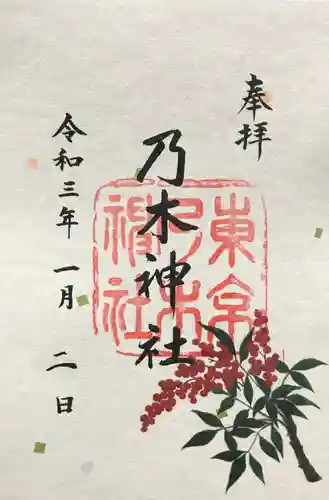 奉拝
乃木神社
令和三年 一月 二日
東京
乃木
神社